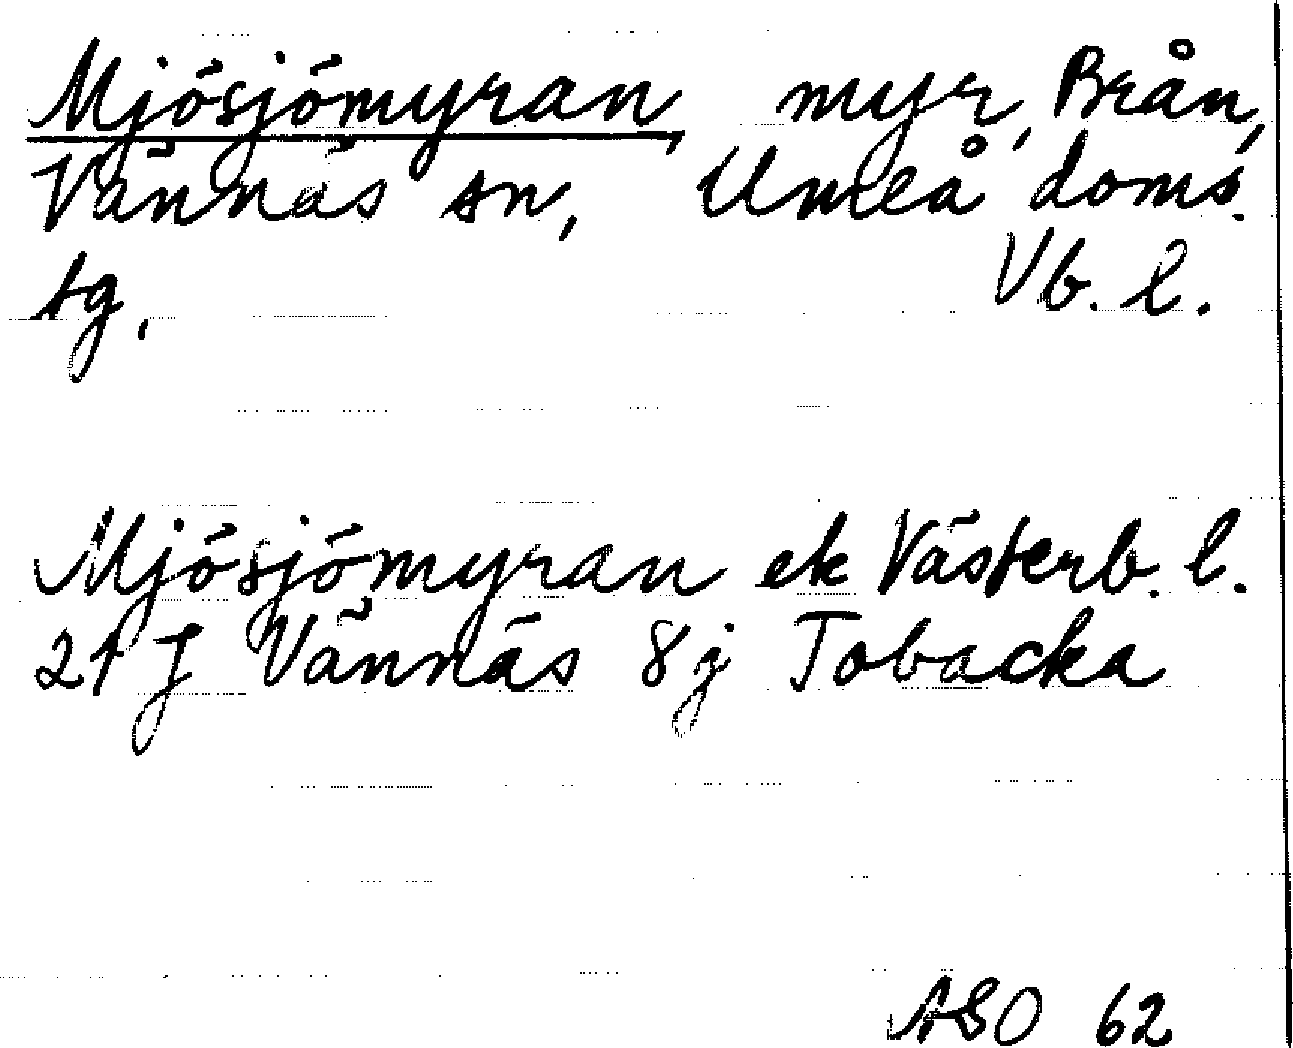 Mjösjömyran, myr, Brån,
Vännäs sn, Umeå doms.
tg, Vb. l.
Mjösjömyran ek Västerb. l.
21 J Vännäs 8j Tobacka
ASO 62